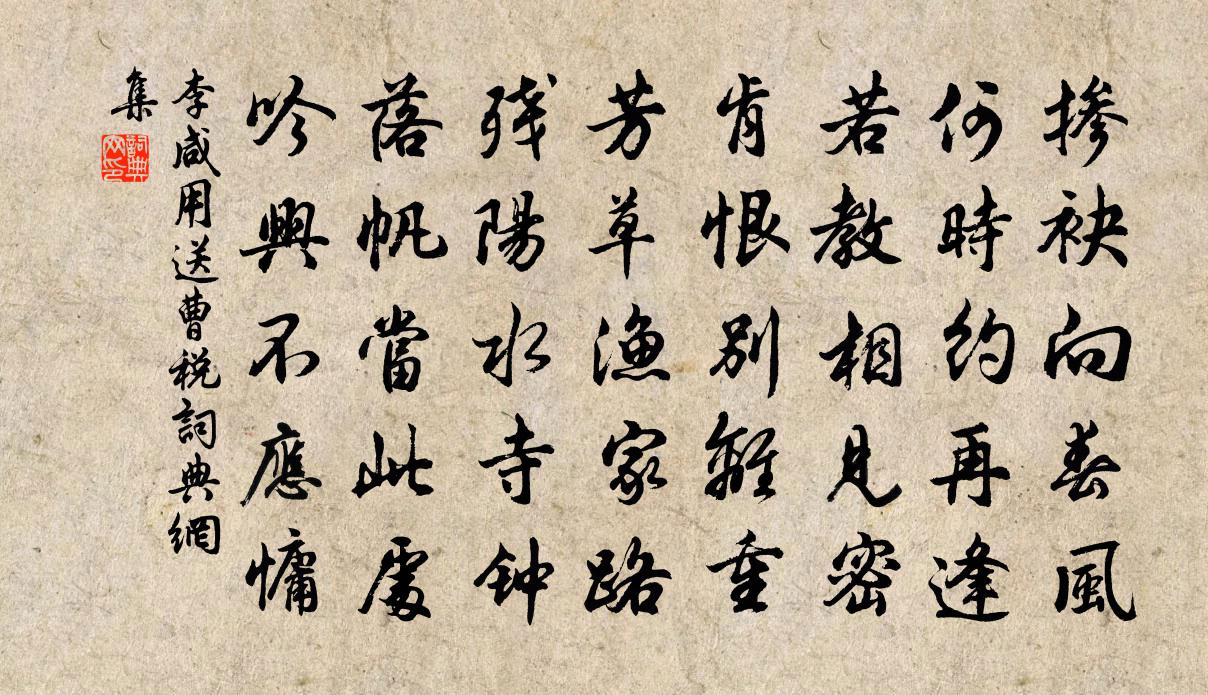 掺袂向春風
何時約再逢
若教相見密
肯恨別離重
芳草漁家路
残陽水寺钟
落帆當此處
吟興不應慵
李咸用送曹税詞典網
集
詞典
网印